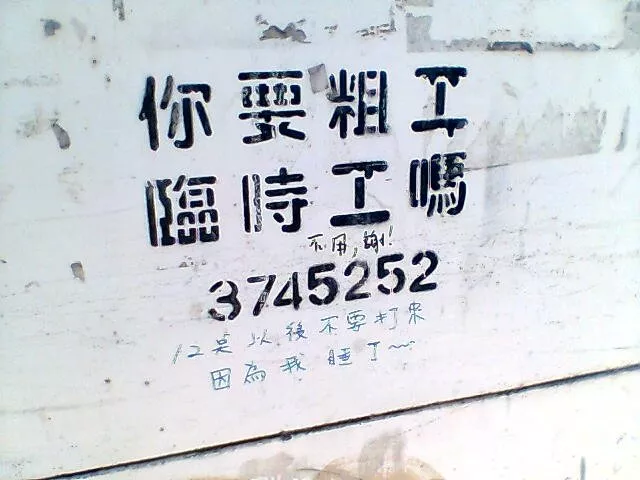 你要粗工
臨時工嗎
不用,謝!
3745252
12点以後不要打來
因為我睡了~